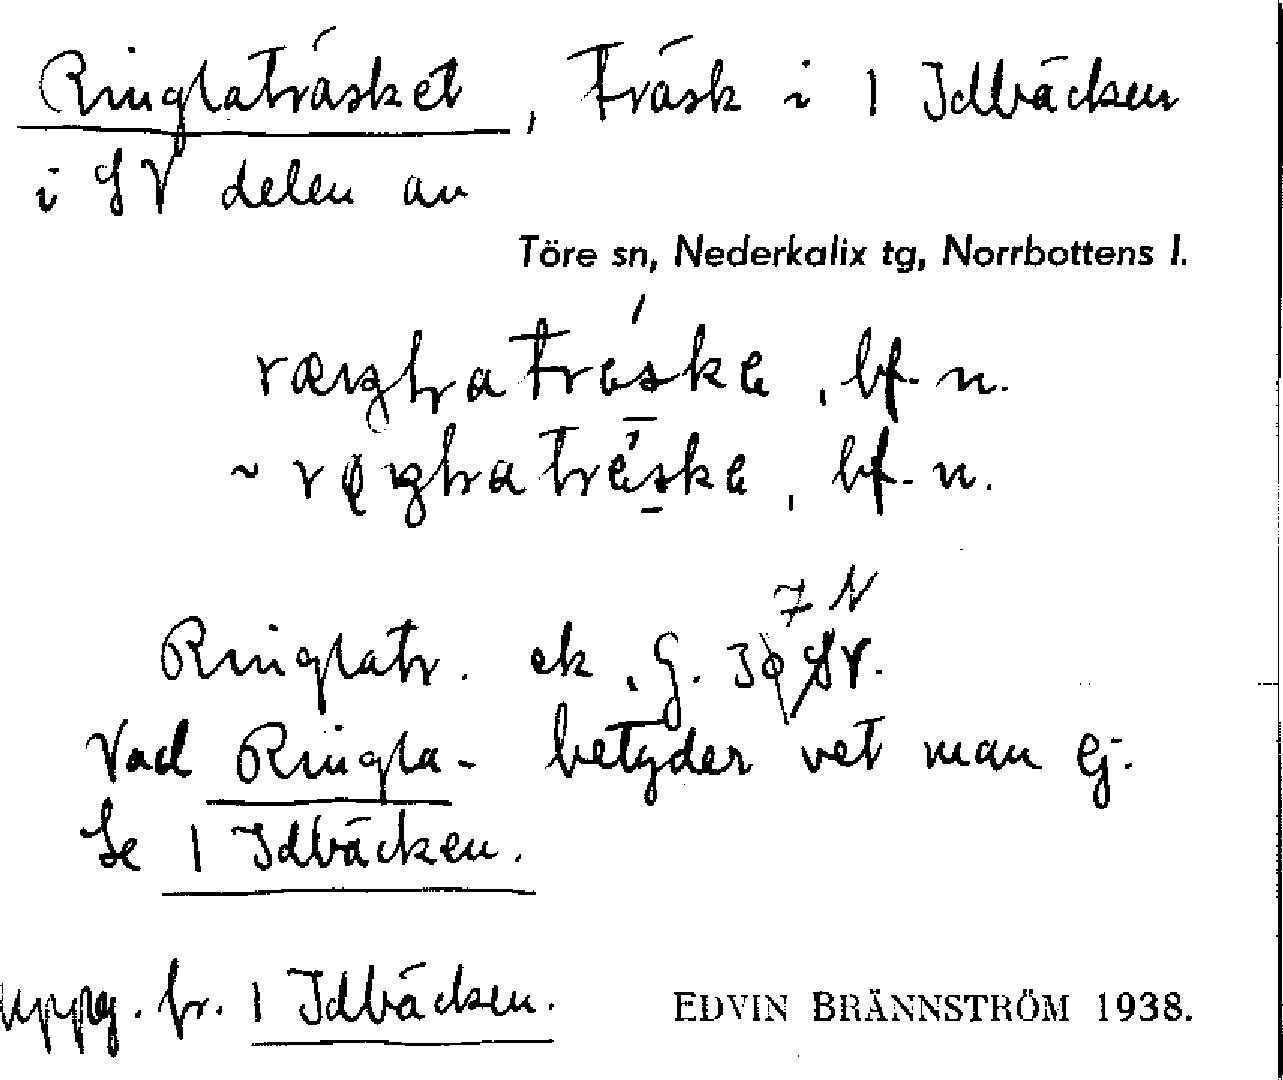 Ringlaträsket, träsk i 1 Idbäcken
i SV delen av
Töre sn, Nederkalix tg, Norrbottens l.
bf. n.
~ bf. n.
7 N
Ringlatr. ek. G. 30 SV.
Vad Ringla- betyder vet man ej.
Se 1 Idbäcken.
uppg. fr. 1 Idbäcken.
EDVIN BRÄNNSTRÖM 1938.